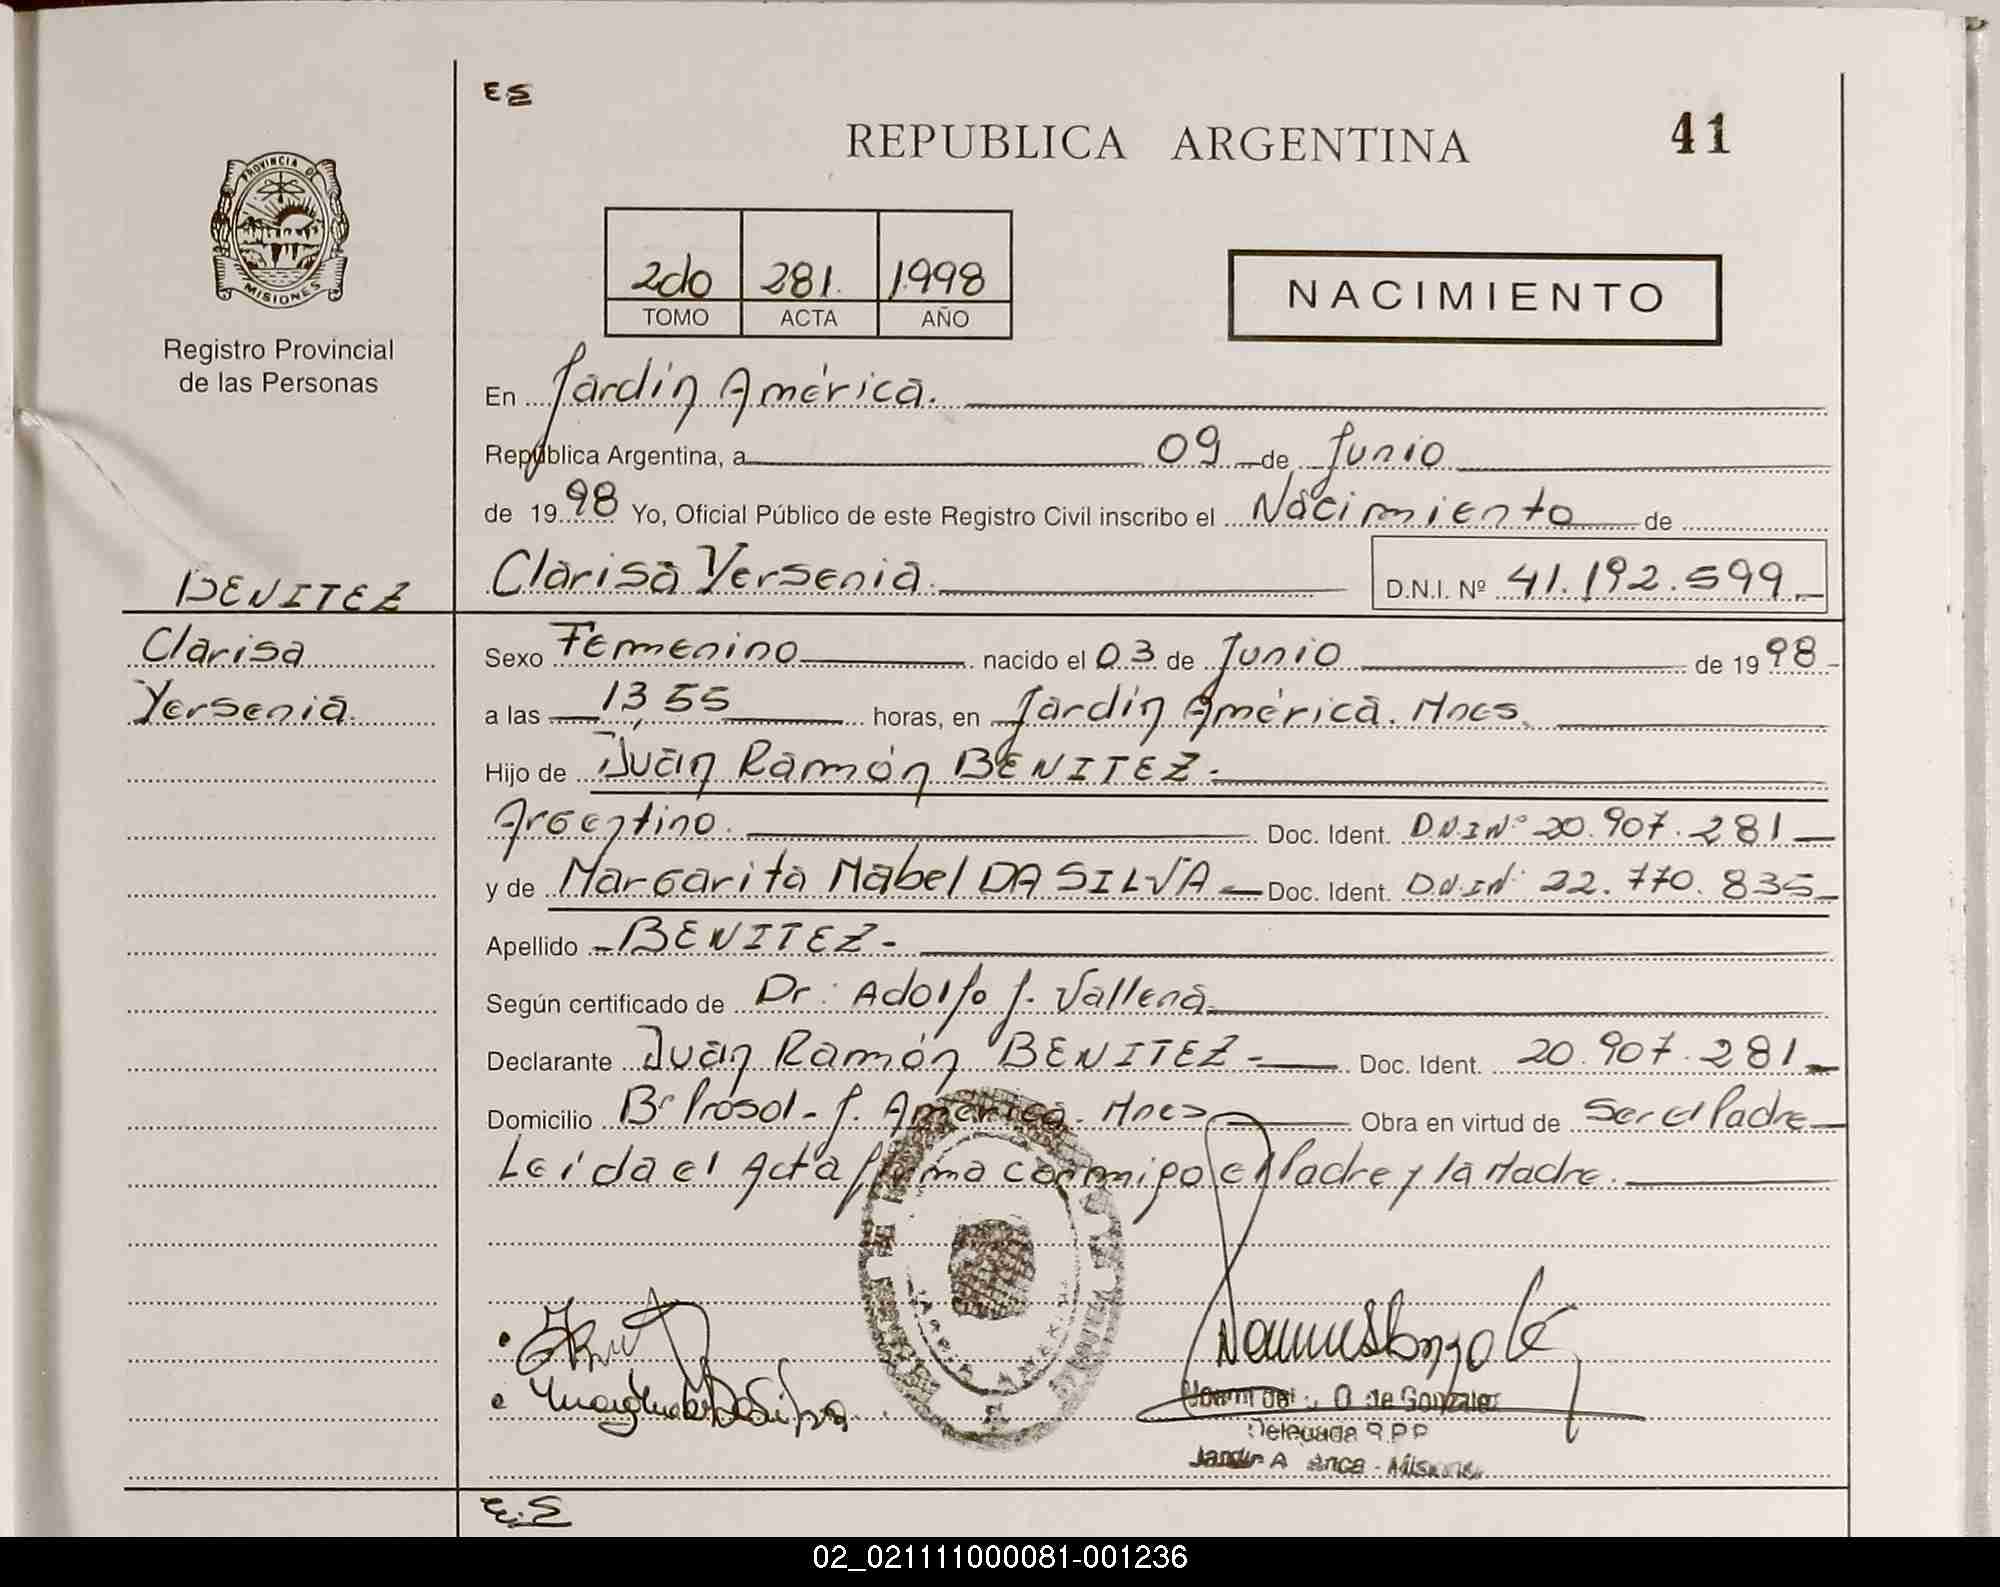 ES
REPUBLICA ARGENTINA
41
PROVINCIA DE
MISIONES
Registro Provincial
de las Personas
2do 281. 1998
TOMO ACTA AÑO
NACIMIENTO
En Jardín América.
República Argentina, a 09 de Junio
de 1998 Yo, Oficial Público de este Registro Civil inscribo el Nacimiento de
Clarisa Yersenia. D.N.I. Nº 41.192.599
BENITEZ
Clarisa
Yersenia.
Sexo Femenino nacido el 03 de Junio de 1998
a las 13,55 horas, en Jardín América. Mnes.
Hijo de Juan Ramón BENITEZ.
Argentino. Doc. Ident. D.N.I Nº 20.907.281
y de Margarita Mabel DA SILVA Doc. Ident. D.N.I Nº 22.770.835
Apellido BENITEZ.
Según certificado de Dr. Adolfo J. Vallena
Declarante Juan Ramón BENITEZ Doc. Ident. 20.907.281
Domicilio Bº Prosol - J. América - Mnes Obra en virtud de Ser el Padre
Leída el Acta firma conmigo el Padre y la Madre.
de Gonzalez
Delegada R.P.P
E.S
02_021111000081-001236